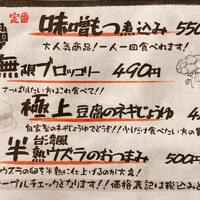 定番
味噌もつ煮込み 550
大人気商品！一人一回食べれます！
無限ブロッコリー 490円
さっぱりしたい方はこれ食べて!!
極上豆腐のネギじょうゆ 4
自家製のネギじょうゆでどうぞ!! 少しだけ食べたい方の
半熟ウズラのおつまみ 500
台湾風
ウズラの卵を半熟に仕上げるのが大変！
ーブルチェックとなります!! 価格表記は税込み